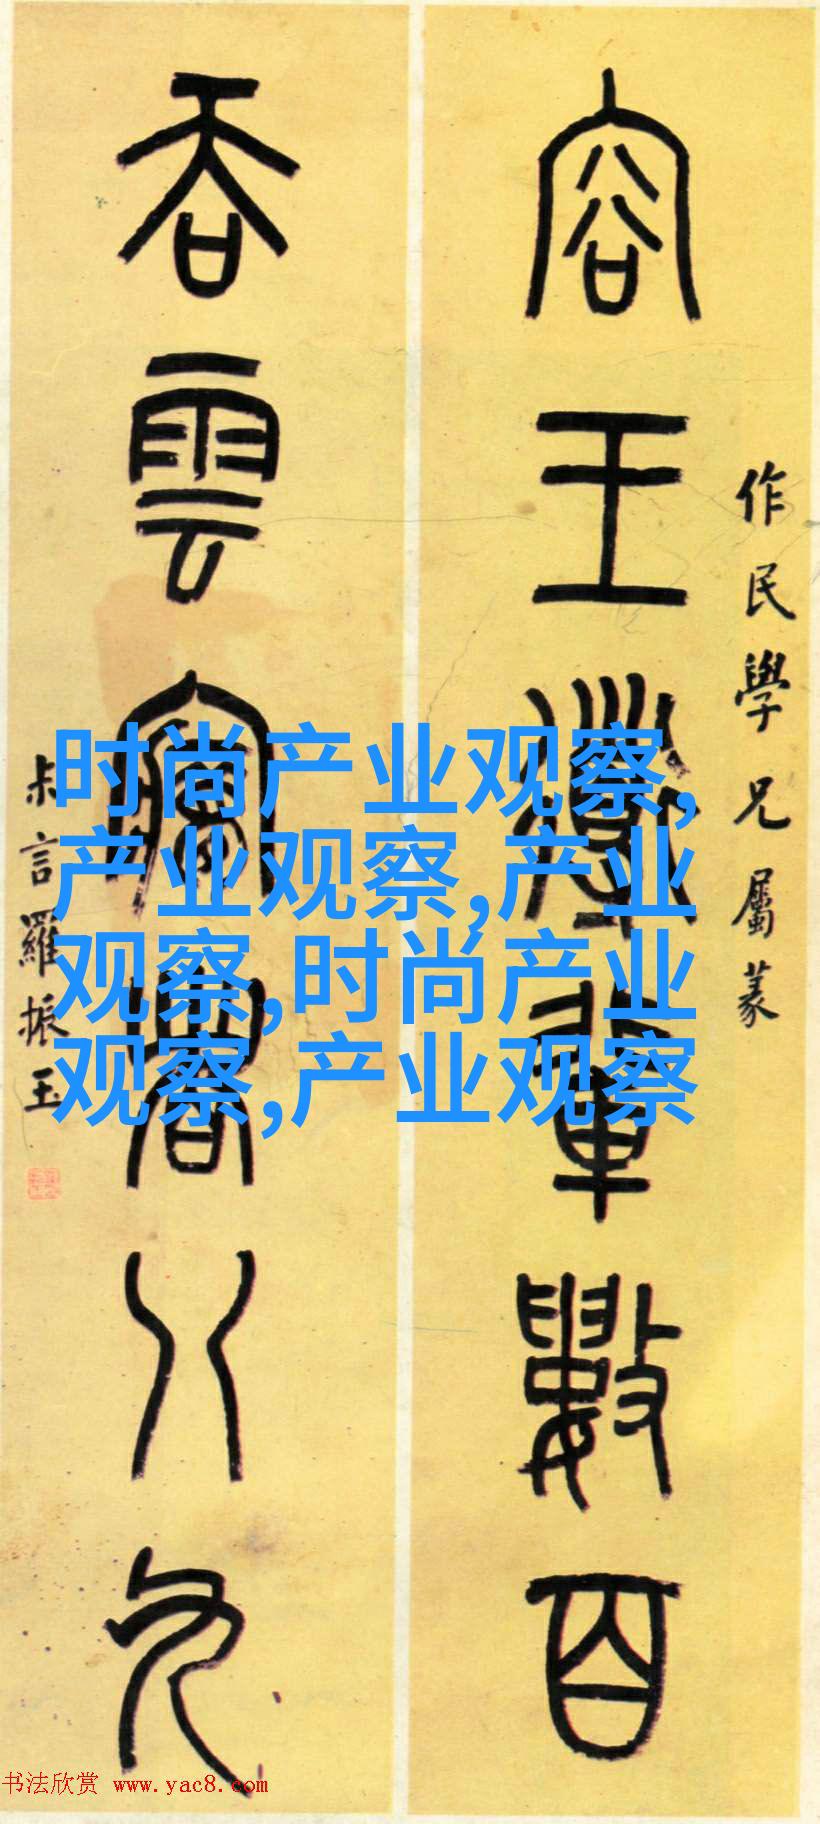 作民學兄屬篆
容王輩數百
吞雲夢者八九
叔言羅振玉
时尚产业观察,
产业观察,产业
观察,时尚产业
观察,产业观察
书法欣赏 www.yac8.com